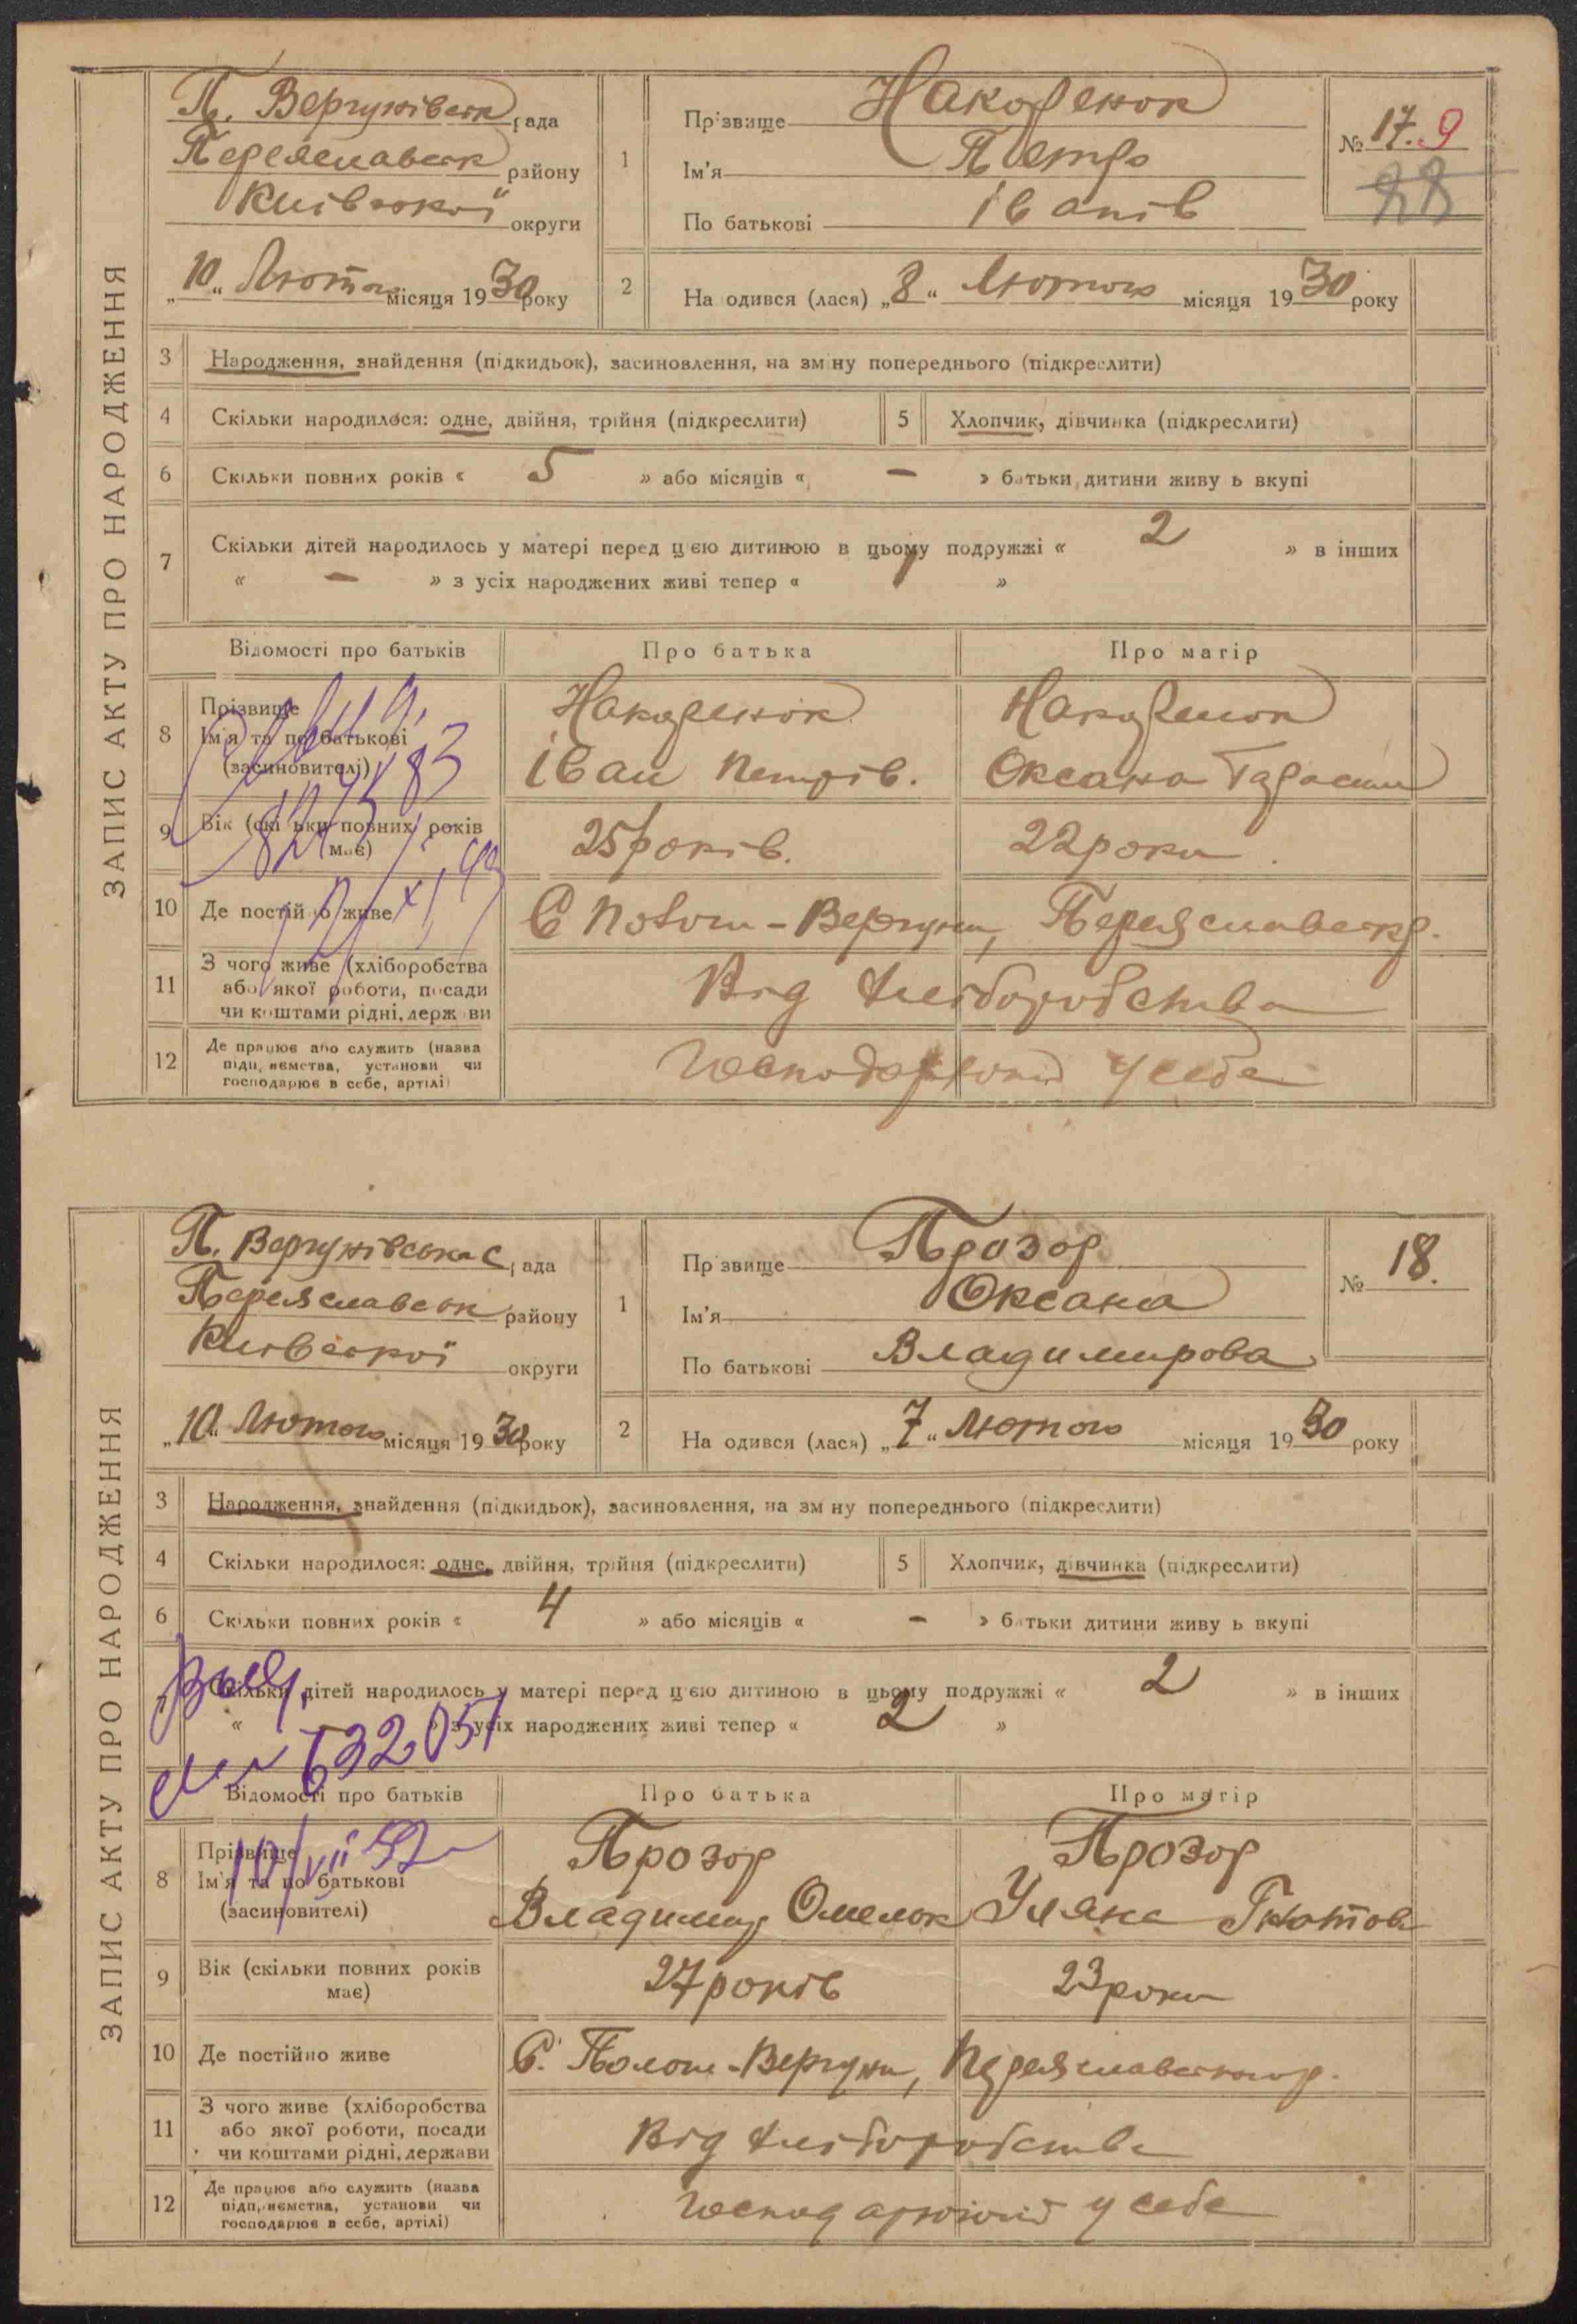 ЗАПИС АКТУ ПРО НАРОДЖЕННЯ
П. Вергунівськ рада
Переяславськ району
Київської округи
„10“ Лютого місяця 1930 року
1
Прізвище
Ім'я Петро
По батькові Іванів
№ 17. 9
28
2
На одився (лася) „8“ Лютого місяця 1930 року
3 Народження, знайдення (підкидьок), засиновлення, на зміну попереднього (підкреслити)
4 Скільки народилося: одне, двійня, трійня (підкреслити) 5 Хлопчик, дівчинка (підкреслити)
6 Скільки повних років « 5 » або місяців « – » батьки дитини живу ь вкупі
7 Скільки дітей народилось у матері перед цією дитиною в цьому подружжі « 2 » в інших
« – » з усіх народжених живі тепер « 1 »
Відомості про батьків Про батька Про матір
8 Прізвище
Ім'я та по батькові
(засиновителі)
Іван Петрів. Оксана Тарасии
9 Вік (скільки повних років
має)
25 років. 22 роки.
10 Де постійно живе С Полом-Вергуни, Переяславськ р.
11 З чого живе (хліборобства
або якої роботи, посади
чи коштами рідні, держави
Від хліборобства
12 Де працює або служить (назва
підприємства, установи чи
господарює в себе, артілі)
у себе
ЗАПИС АКТУ ПРО НАРОДЖЕННЯ
П. Вергунівська с рада
Переяславськ району
Київської округи
„10“ Лютого місяця 1930 року
1
Прізвище Прозор
Ім'я Оксана
По батькові Владимирова
№ 18.
2
На одився (лася) „7“ Лютого місяця 1930 року
3 Народження, знайдення (підкидьок), засиновлення, на зміну попереднього (підкреслити)
4 Скільки народилося: одне, двійня, трійня (підкреслити) 5 Хлопчик, дівчинка (підкреслити)
6 Скільки повних років « 4 » або місяців « – » батьки дитини живу ь вкупі
Скільки дітей народилось у матері перед цією дитиною в цьому подружжі « 2 » в інших
« – » з усіх народжених живі тепер « 2 »
632057
Відомості про батьків Про батька Про матір
8 Прізвище
Ім'я та по батькові
(засиновителі)
10/VII 52
Прозор Прозор
Владимир Омельк Уляна Гнатова
9 Вік (скільки повних років
має)
27 років 23 роки
10 Де постійно живе С. Полом-Вергуни, Переяславськог р.
11 З чого живе (хліборобства
або якої роботи, посади
чи коштами рідні, держави
Від хліборобства
12 Де працює або служить (назва
підприємства, установи чи
господарює в себе, артілі)
у себе